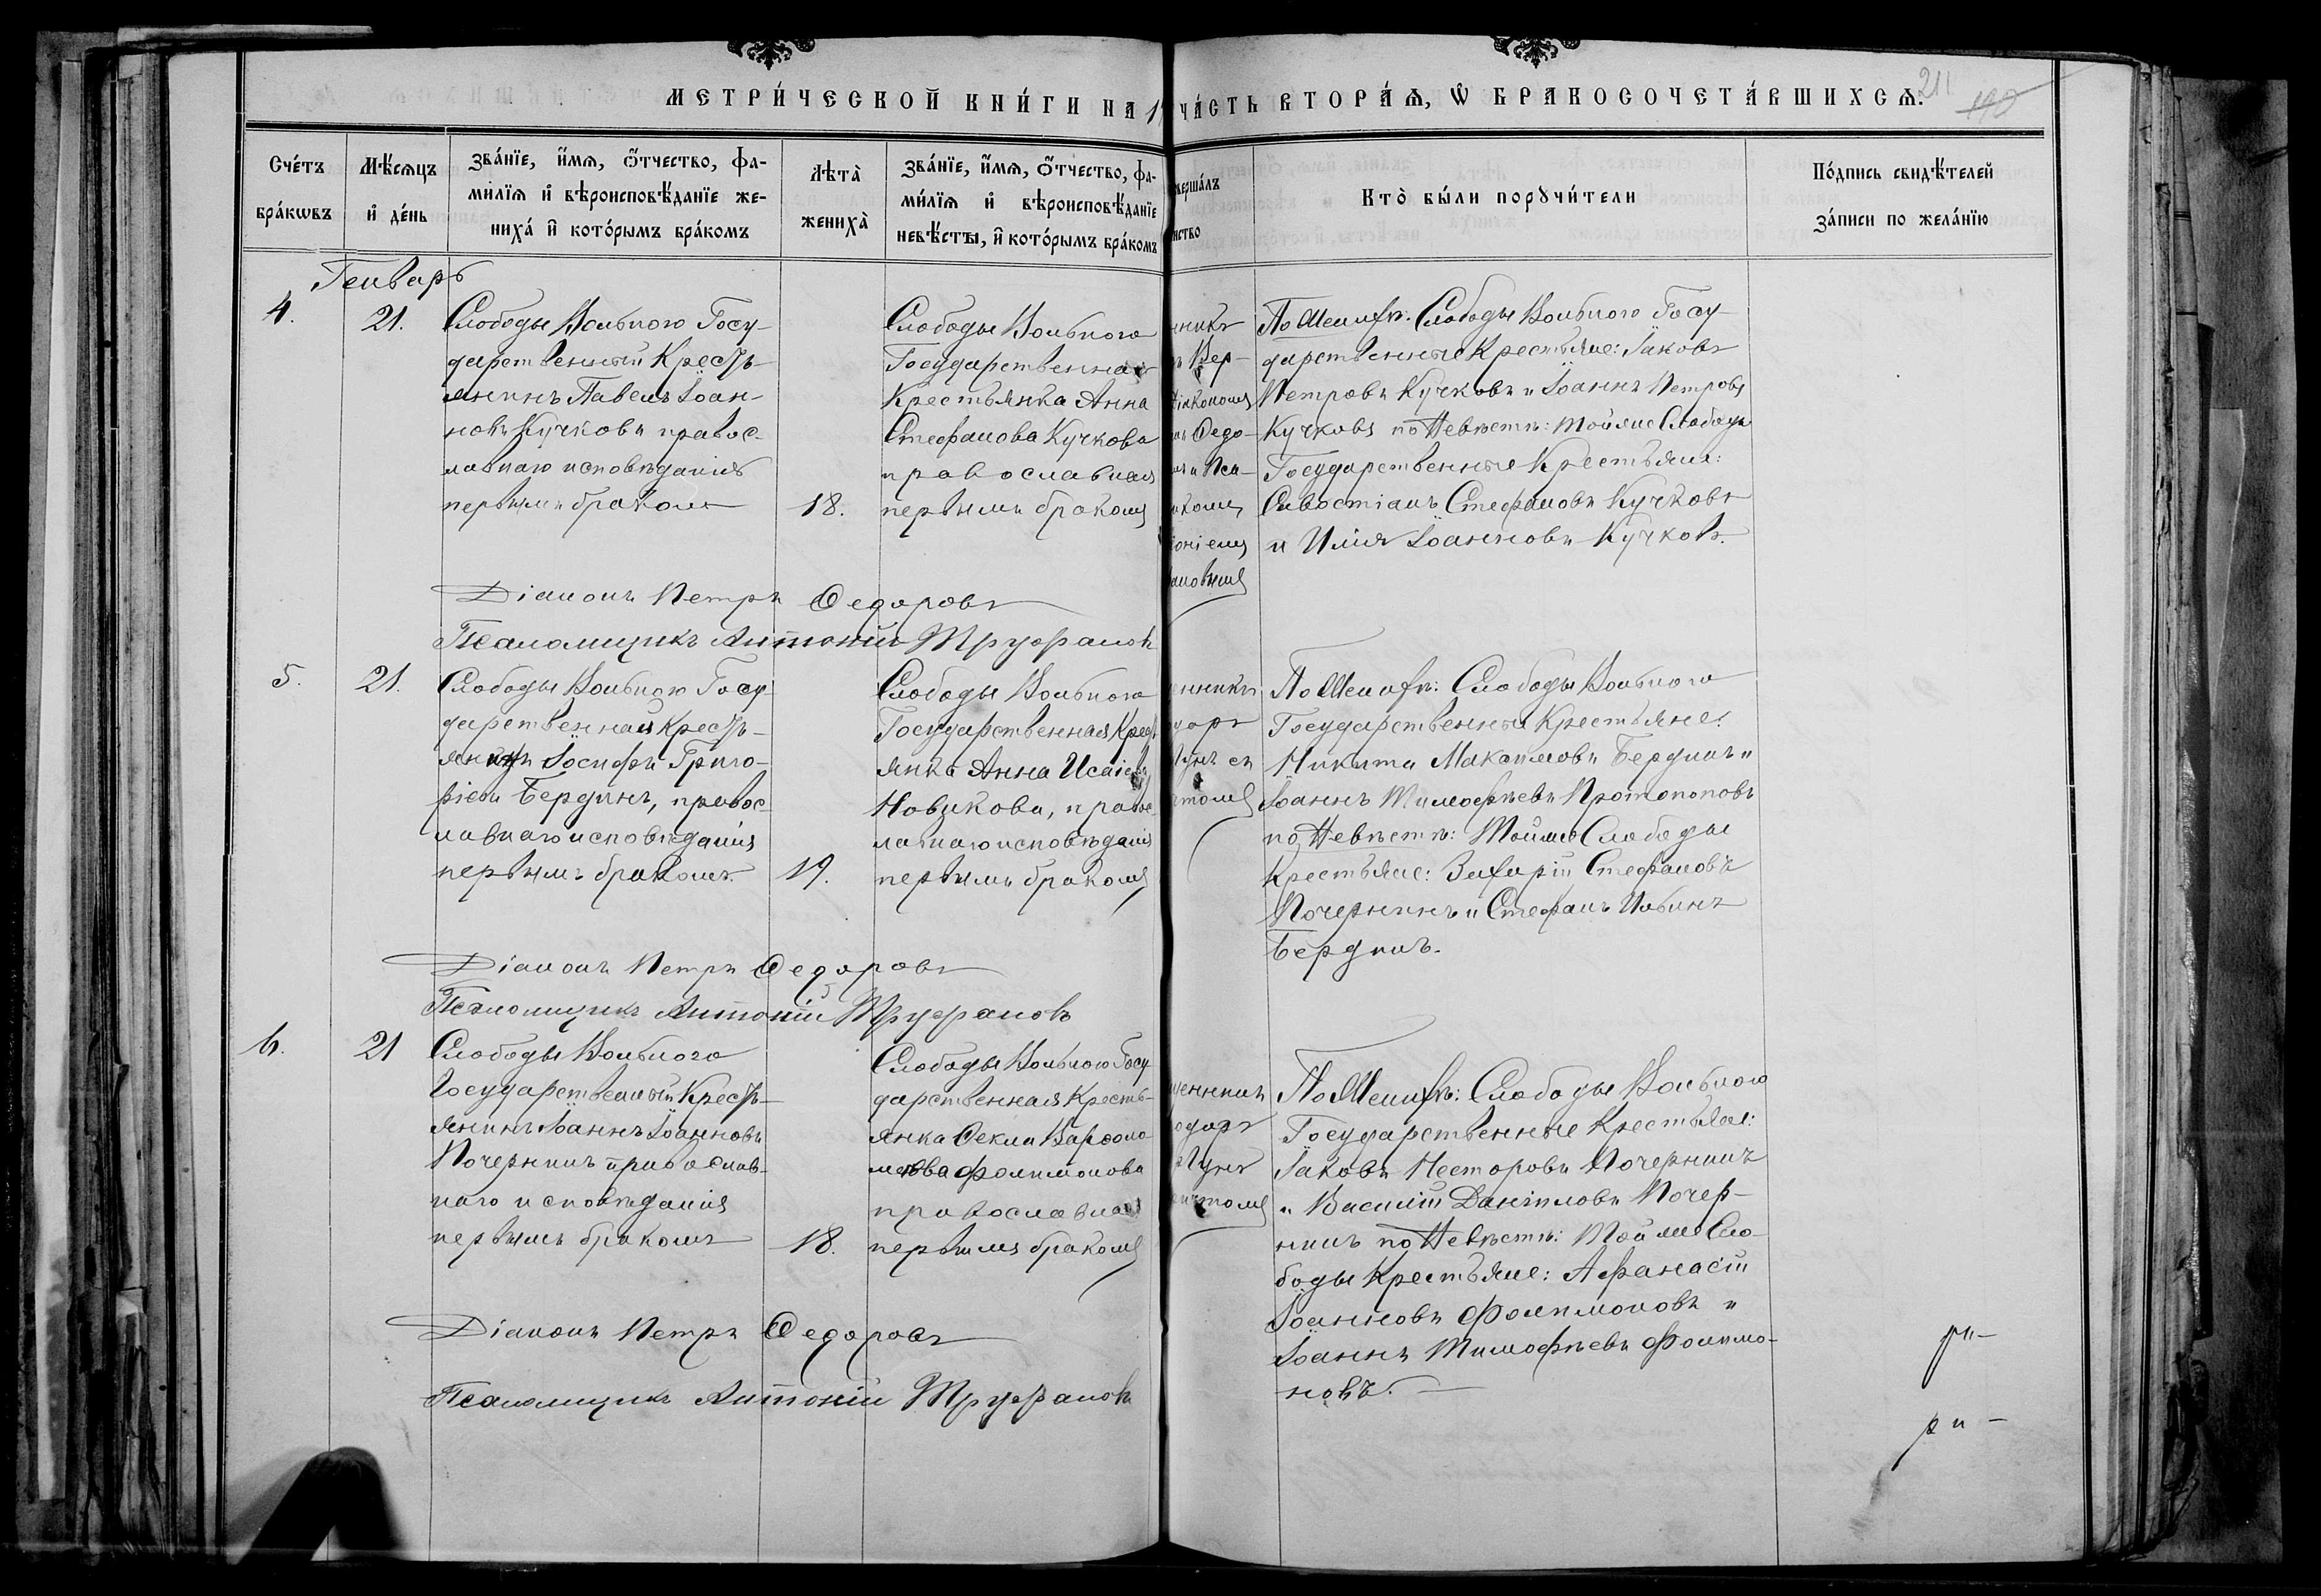 МЕТРИ́ЧЕСКОЙ КНИ́ГИ НА 1
ЧА́СТЬ ВТОРА́Ѧ, Ѡ БРАКОСОЧЕТА́ВШИХСѦ.
211
Сче́тъ бра́кѡвъ
Мѣ́сѧцъ и҆ де́нь
Зва́нїе, и҆́мѧ, ѻ҆́тчество, фа-
ми́лїѧ и҆ вѣроисповѣ́данїе же-
ниха́ и҆ кото́рымъ бра́комъ
Лѣта̀ жениха̀
Зва́нїе, и҆́мѧ, ѻ҆́тчество, фа-
ми́лїѧ и҆ вѣроисповѣ́данїе
невѣ́сты, и҆ кото́рымъ бра́комъ
вершáлъ
нство
Кто̀ бы́ли порꙋчи́тели
По́дпись свидѣ́телей
за́писи по жела́нїю
Генварь
4.
21.
Слободы Вольного Госу-
дарственный Кресть-
янинъ Павелъ Іоан-
новъ Кучковъ правос-
лавнаго исповѣданія
первымъ бракомъ
18.
Слободы Вольного
Государственная
Крестьянка Анна
Стефанова Кучкова
православная
первымъ бракомъ
По Женихѣ: Слободы Вольного Госу-
дарственные Крестьяне: Іаковъ
Петровъ Кучковъ и Іоаннъ Петровъ
Кучковъ по Невѣстѣ: Тойже Слободы
Государственные Крестьяне:
Севостіанъ Стефановъ Кучковъ
и Илія Іоанновъ Кучковъ.
Діаконъ Петръ Ѳедоровъ
Псаломщикъ Антоній Труфановъ
5.
21.
Слободы Вольного Госу-
дарственная Кресть-
янинъ Іосифъ Григо-
ріевъ Бердинъ, правос-
лавнаго исповѣданія
первымъ бракомъ.
19.
Слободы Вольного
Государственная Кресть
янка Анна Исаіева
Новикова, правос
лавнаго исповѣданія
первымъ бракомъ
По Женихѣ: Слободы Вольного
Государственныя Крестьяне:
Никита Максимовъ Бердинъ и
Іоаннъ Тимофѣевъ Протопоповъ
по Невѣстѣ: Тойже Слободы
Крестьяне: Захарій Стефановъ
Почернинъ и Стефанъ Ильинъ
Бердинъ.
Діаконъ Петръ Ѳедоровъ
Псаломщикъ Антоній Труфановъ
6.
21
Слободы Вольного
Государственный Кресть-
янинъ Іоаннъ Іоанновъ
Почернинъ православ-
наго исповѣданія
первымъ бракомъ
18.
Слободы Вольного Госу
дарственная Кресть-
янка Ѳекла Варѳоло-
меева Филимонова
православная
первымъ бракомъ
По Женихѣ: Слободы Вольного
Государственные Крестьяне:
Іаковъ Несторовъ Почернинъ
и Василій Даніиловъ Почер-
нинъ по Невѣстѣ: Тойже Сло-
боды Крестьяне: Афанасій
Іоанновъ Филимоновъ и
Іоаннъ Тимофѣевъ Филимо-
новъ.
Діаконъ Петръ Ѳедоровъ
Псаломщикъ Антоній Труфановъ